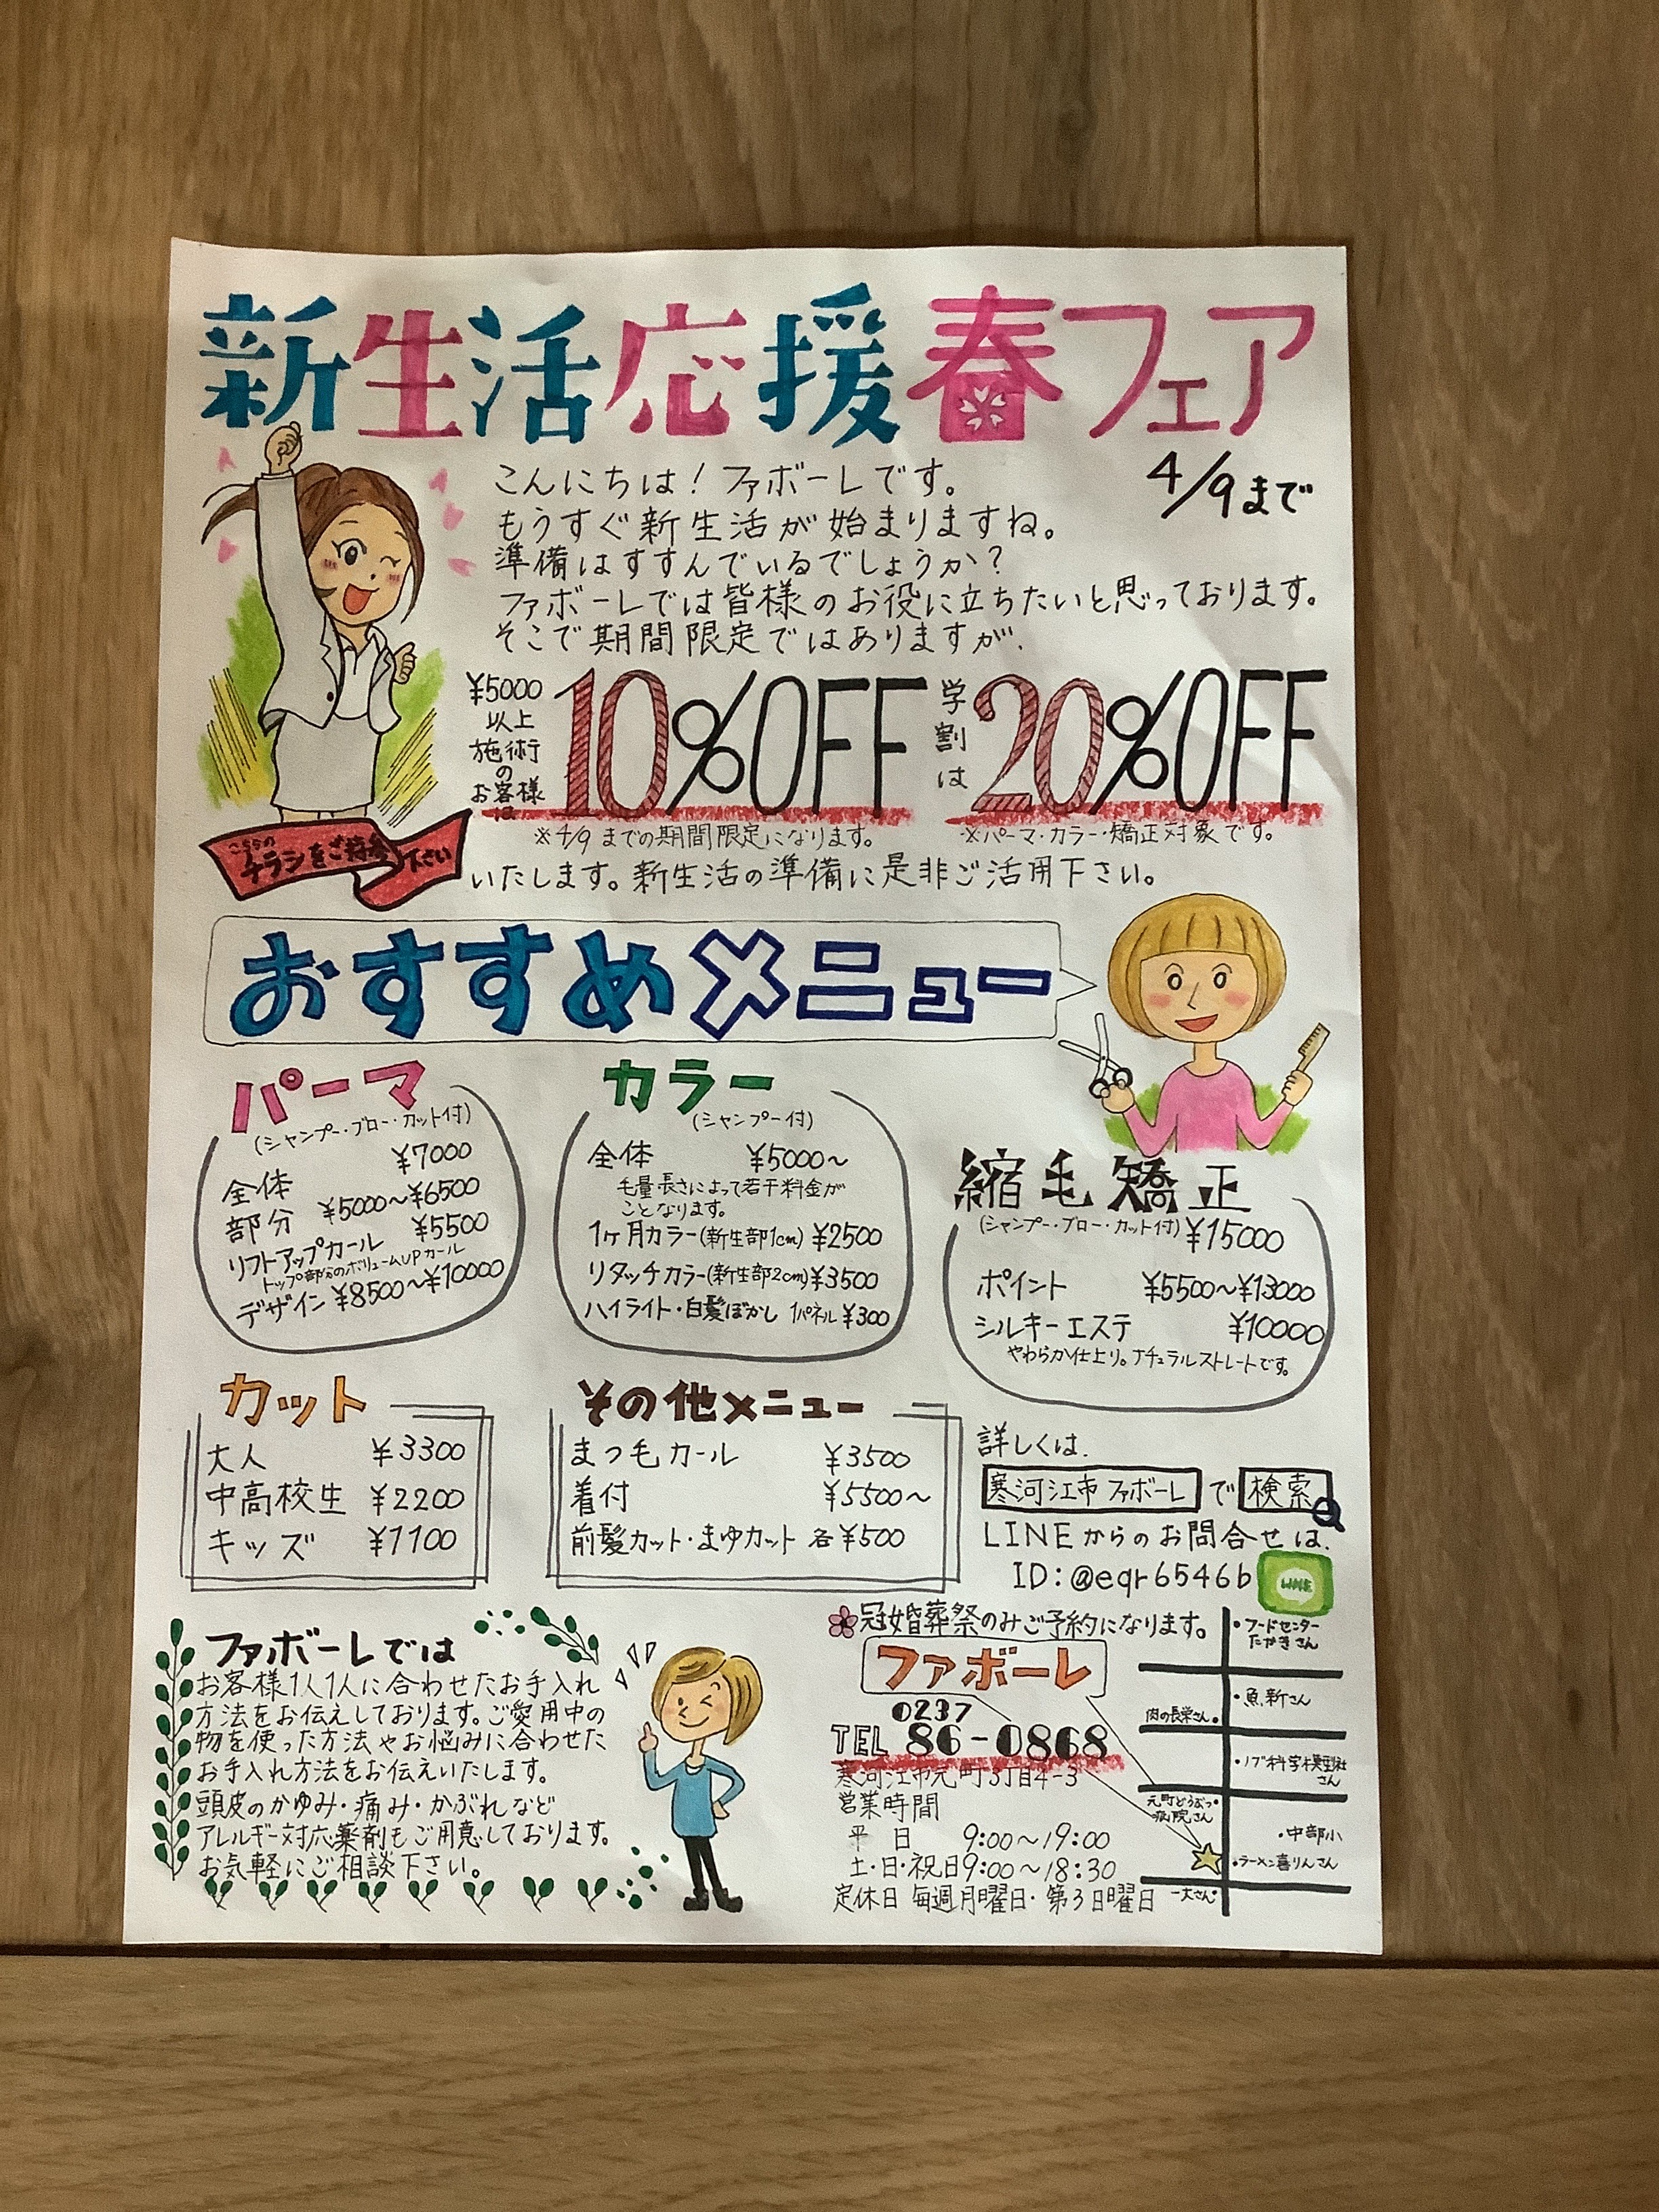 新生活応援春フェア
4/9まで
こんにちは！ファボーレです。
もうすぐ新生活が始まりますね。
準備はすすんでいるでしょうか？
ファボーレでは皆様のお役に立ちたいと思っております。
そこで期間限定ではありますが、
¥5000
以上
施術
の
お客様
は
10%OFF
学割は
20%OFF
※4/9までの期間限定になります。
※パーマ・カラー・矯正対象です。
こちらの
チラシをご持参下さい
いたします。新生活の準備に是非ご活用下さい。
おすすめメニュー
パーマ
(シャンプー・ブロー・カット付)
全体 ¥7000
部分 ¥5000〜¥6500
リフトアップカール ¥5500
トップ部分のボリュームUPカール
デザイン ¥8500〜¥10000
カラー
(シャンプー付)
全体 ¥5000〜
毛量長さによって若干料金が
ことなります。
1ヶ月カラー(新生部1cm) ¥2500
リタッチカラー(新生部2cm) ¥3500
ハイライト・白髪ぼかし 1パネル ¥300
縮毛矯正
(シャンプー・ブロー・カット付) ¥15000
ポイント ¥5500〜¥13000
シルキーエステ ¥10000
やわらか仕上り。ナチュラルストレートです。
カット
大人 ¥3300
中高校生 ¥2200
キッズ ¥1100
その他メニュー
まつ毛カール ¥3500
着付 ¥5500〜
前髪カット・まゆカット 各¥500
詳しくは、
寒河江市 ファボーレ で 検索
LINEからのお問合せは、
ID:@eqr6546b
LINE
ファボーレでは
お客様1人1人に合わせたお手入れ
方法をお伝えしております。ご愛用中の
物を使った方法やお悩みに合わせた
お手入れ方法をお伝えいたします。
頭皮のかゆみ・痛み・かぶれなど
アレルギー対応薬剤もご用意しております。
お気軽にご相談下さい。
冠婚葬祭のみご予約になります。
ファボーレ
0237
TEL 86-0868
寒河江市元町3丁目4-3
営業時間
平 日 9:00〜19:00
土・日・祝日9:00〜18:30
定休日 毎週月曜日・第3日曜日
・フードセンター
たかきさん
・魚新さん
肉の長栄さん・
・ノブ科学模型社
さん
元町どうぶつ・
病院さん
・中部小
・ラーメン喜りんさん
一丈さん・